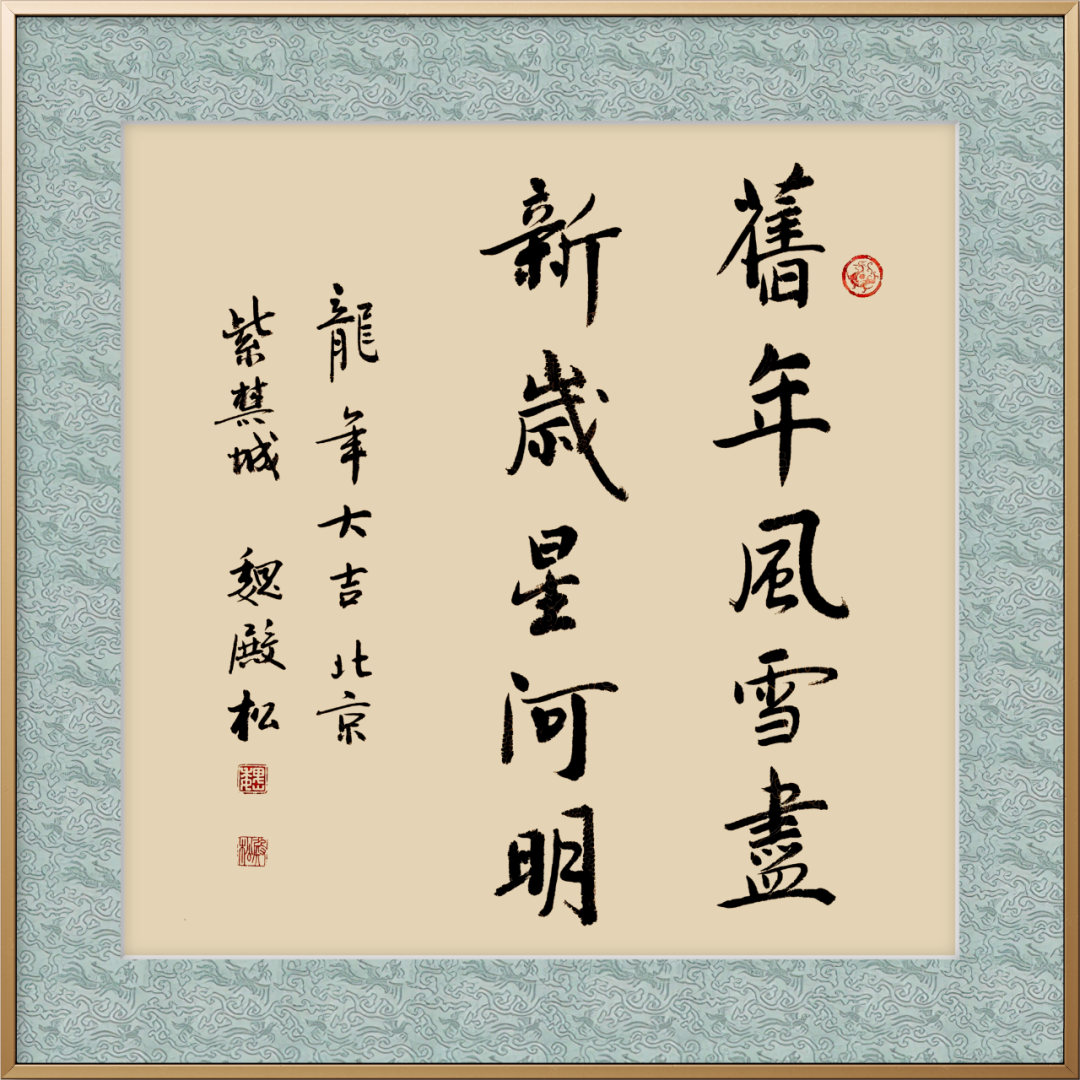 舊年風雪盡
新歲星河明
龍年大吉北京
紫禁城 魏殿松
魏
殿松